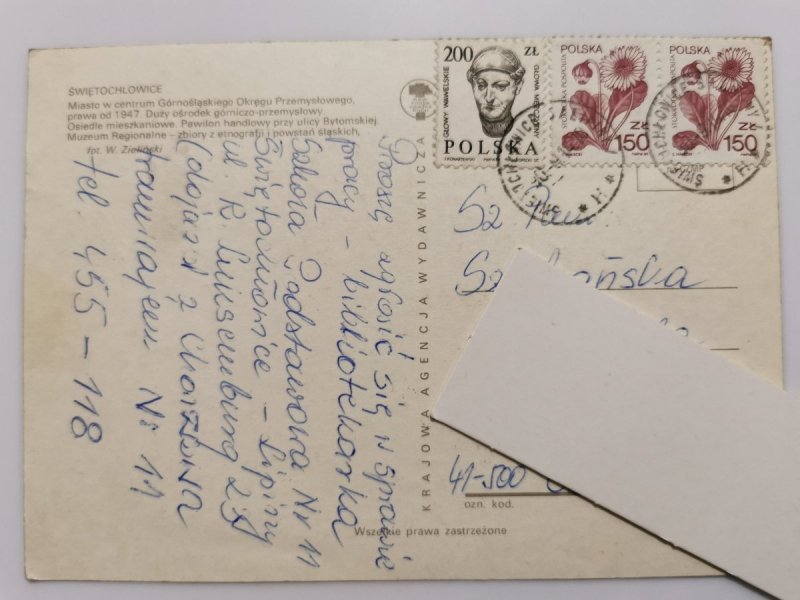 ŚWIĘTOCHŁOWICE
Miasto w centrum Górnośląskiego Okręgu Przemysłowego,
prawa od 1947. Duży ośrodek górniczo-przemysłowy
Osiedle mieszkaniowe. Pawilon handlowy przy ulicy Bytomskiej.
Muzeum Regionalne – zbiory z etnografii i powstań śląskich,
fot. W. Zieliński
Proszę zgłosić się w sprawie
pracy – bibliotekarka
Szkoła Podstawowa Nr 11
Świętochłowice – Lipiny
ul R. Luksemburg
(dojazd z Chorzowa
tramwajem Nr 11
tel. 455-118
KRAJOWA AGENCJA WYDAWNICZA
200 ZŁ
GŁOWY WAWELSKIE
POLSKA
POLSKA
STOKROTKA POSPOLITA
ZŁ
150
POLSKA
ZŁ
150
Sz. Pani
41-500
ozn. kod.
Wszelkie prawa zastrzeżone